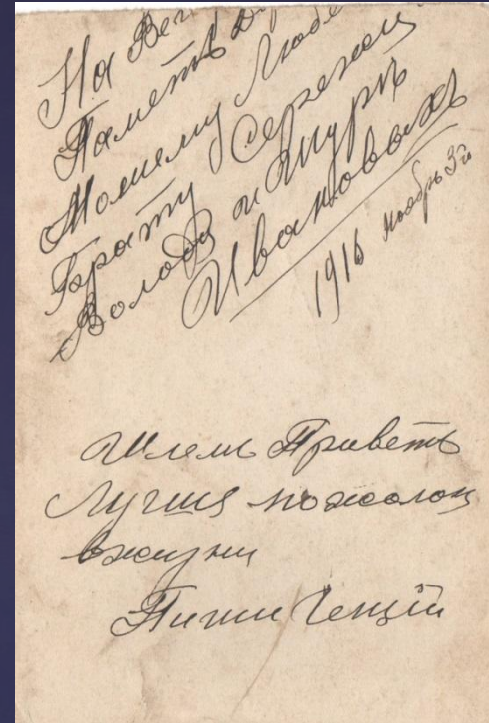 На Веч
Паметь
Моиему Любе
Брату Сережи
Володя и Шуры
Ивановыхъ
1916 ноябрь 3го
Шлемъ Приветъ
Лучшия пожелан
вжизни
Пиши